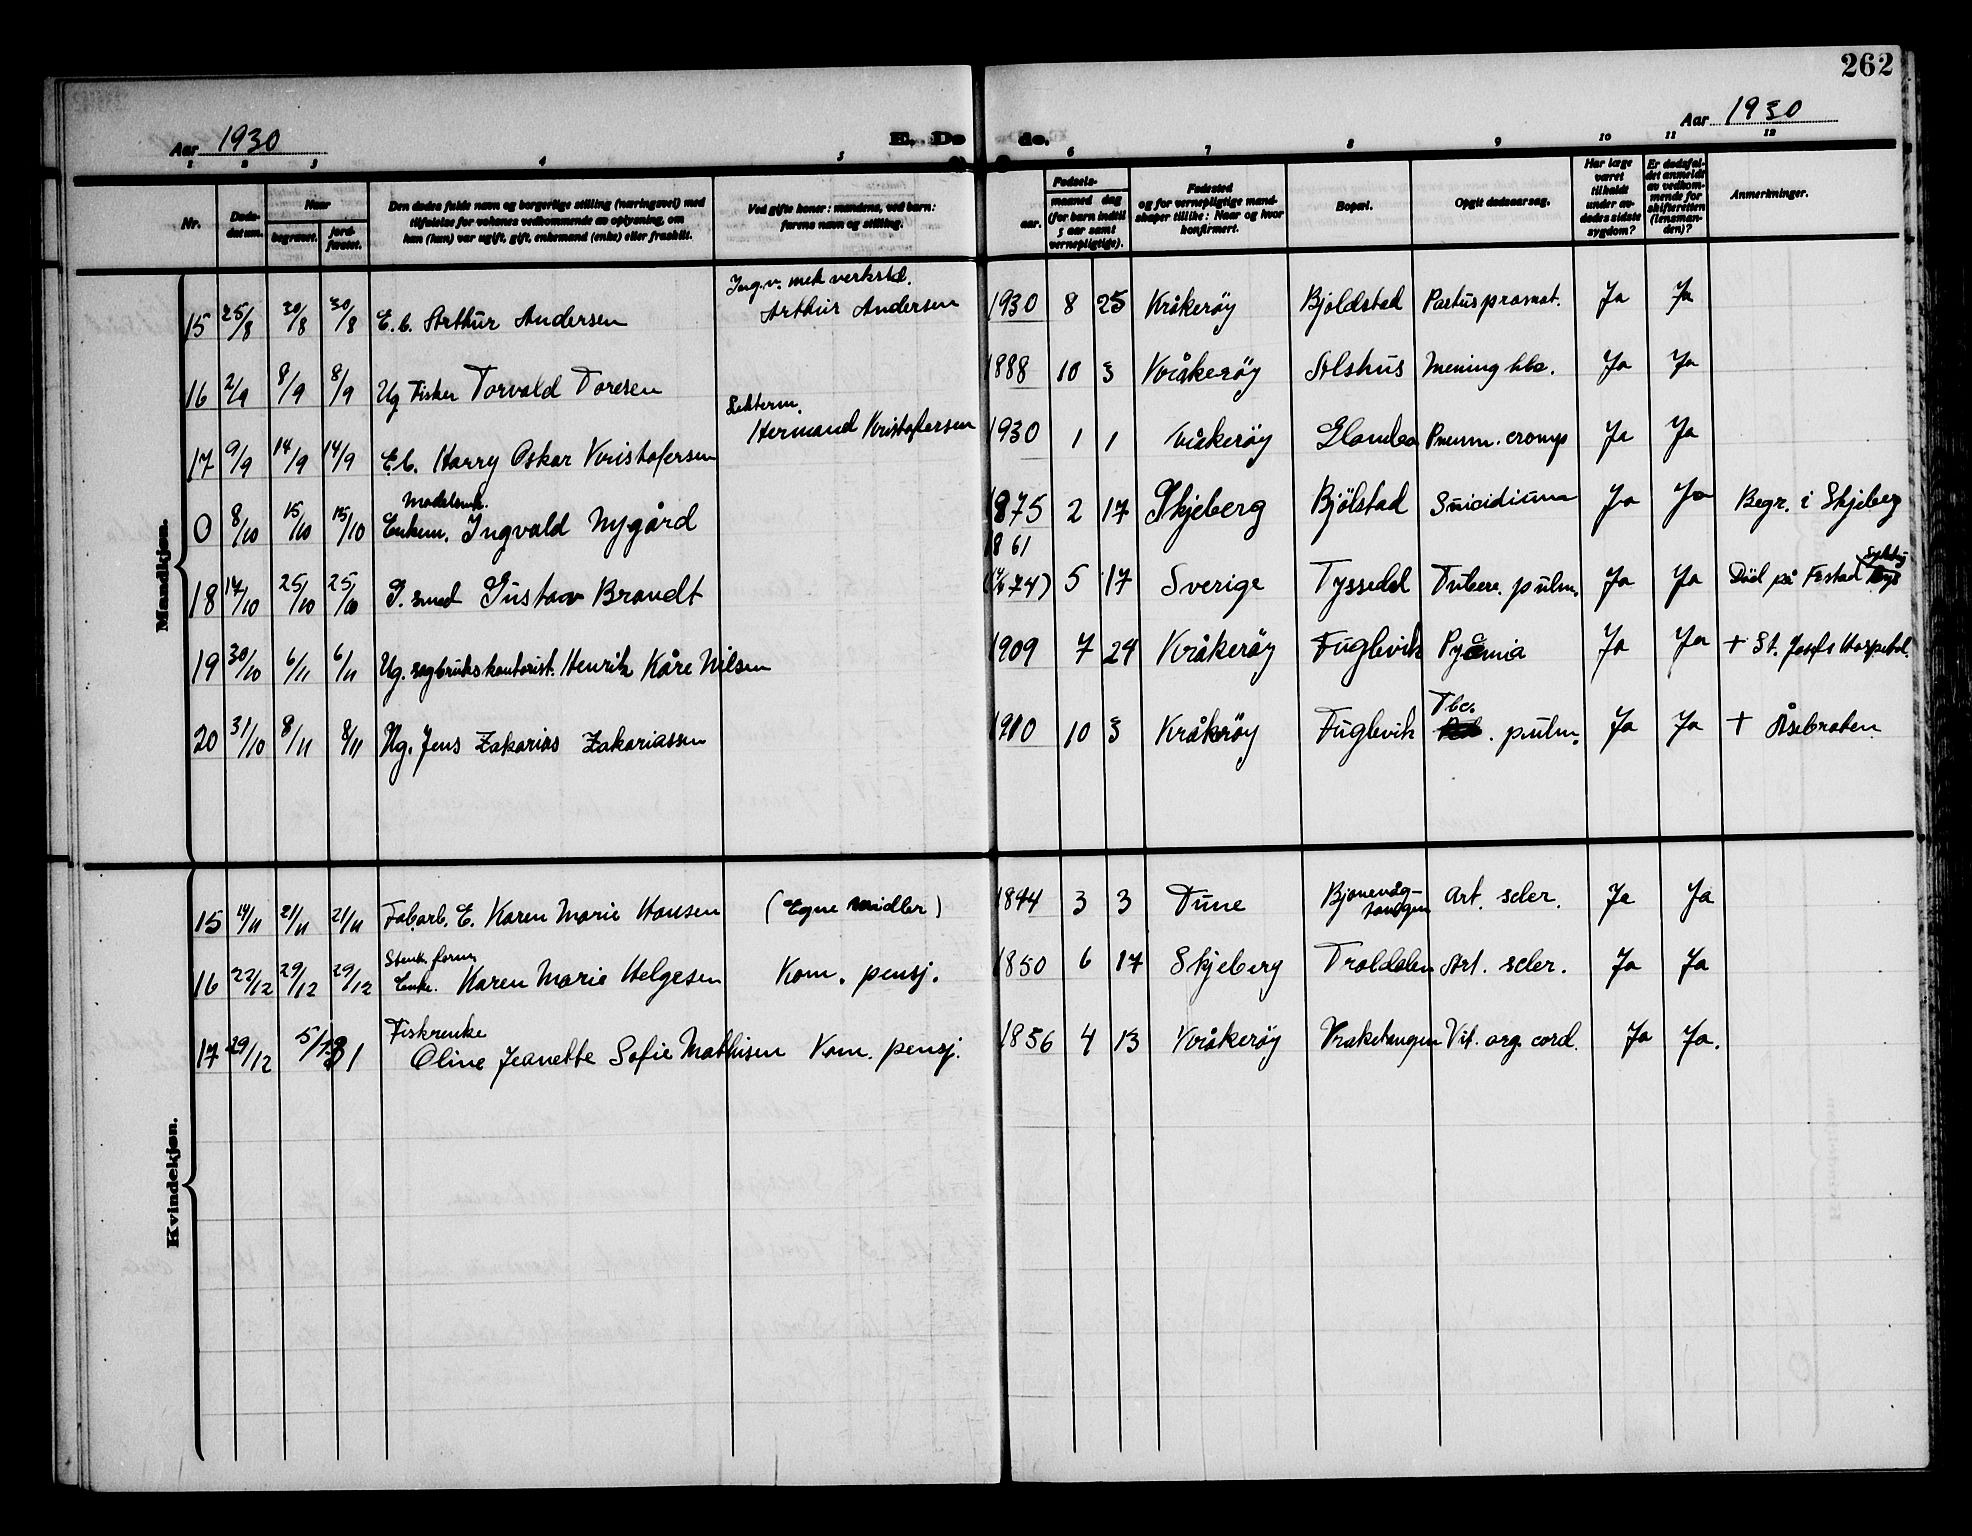 262
Aar 1930 E. Dø de. Aar 1930
1 2 3 4 5 6 7 8 9 10 11 12
Nr. Døds-datum. Naar begravet. jord-fæstet. Den dødes fulde navn og borgerlige stilling (næringsvei) med tilføielse for voksnes vedkommende av oplysning, om han (hun) var ugift, gift, enkemand (enke) eller fraskilt. Ved gifte koner: mandens, ved barn: farens navn og stilling. Fødsels- aar. maaned dag (for barn indtil 5 aar samt vernepligtige). Fødested og for vernepligtige mandskaper tillike: Naar og hvor konfirmert. Bopæl. Opgit dødsaarsag. Har læge været tilkaldt under avdødes sidste sygdom? Er dødsfaldet anmeldt av vedkommende for skifteretten (lensmanden)? Anmerkninger.
Mandkjøn.
15 25/8 30/8 30/8 E. b. Arthur Andersen Ing. v. mek verksted. Arthur Andersen 1930 8 25 Kråkerøy Bjølstad Partus præmat. Ja Ja
16 2/9 8/9 8/9 Ug Fisker Torvald Toresen 1888 10 3 Kråkerøy Solshus Mening tbc. Ja Ja
17 9/9 14/9 14/9 E.b. Harry Oskar Kristofersen Hermand Kristofersen 1930 1 1 Kråkerøy Glombo Pneum. croup Ja Ja
0 8/10 15/10 15/10 Modelsnk. Enkem. Ingvald Nygård 1875 2 17 Skjeberg Bjölstad Suicidium Ja Ja Begr. i Skjeberg
18 17/10 25/10 25/10 G. smed Gustav Brandt 1861 (17/6 74) 5 17 Sverige Tyssedal Tuberc. pulm. Ja Ja Död på F.stad
19 30/10 6/11 6/11 Ug. sagbrukskontorist. Henrik Kåre Nilsen 1909 7 24 Kråkerøy Fuglevik Pyæmia Ja Ja + St. Josefs Hospital.
20 31/10 8/11 8/11 Ug. Jens Zakarias Zakariassen 1910 10 3 Kråkrøy Fuglevik Tbc. pulm. Ja Ja + Åsebråten
Kvindekjøn.
15 14/11 21/11 21/11 Fabarb. E. Karen Marie Hansen (Egne midler) 1844 3 3 Tune Bjønevåg-tangen Art. scler. Ja Ja
16 22/12 29/12 29/12 Stenh. form. Enke. Karen Marie Helgesen Kom. pensj. 1850 6 17 Skjeberg Troldalen Art. scler. Ja Ja
17 29/12 5/1 31 Fiskrenke Oline Jeanette Sofie Mathisen Kom. pensj. 1856 4 13 Kråkerøy Vraketangen Vit. org. cord. Ja Ja.